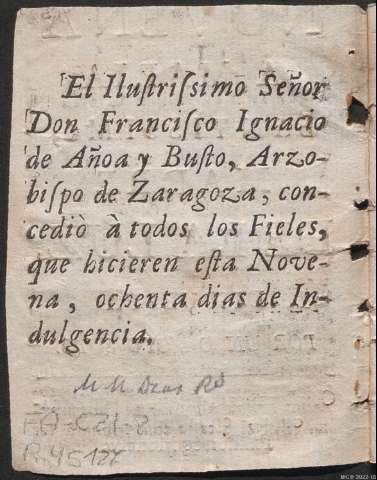 El Iluſtriſsimo Señor
Don Franciſco Ignacio
de Añoa y Buſto, Arzo-
biſpo de Zaragoza, con-
cediò à todos los Fieles,
que hicieren eſta Nove-
na, ochenta dias de In-
dulgencia.